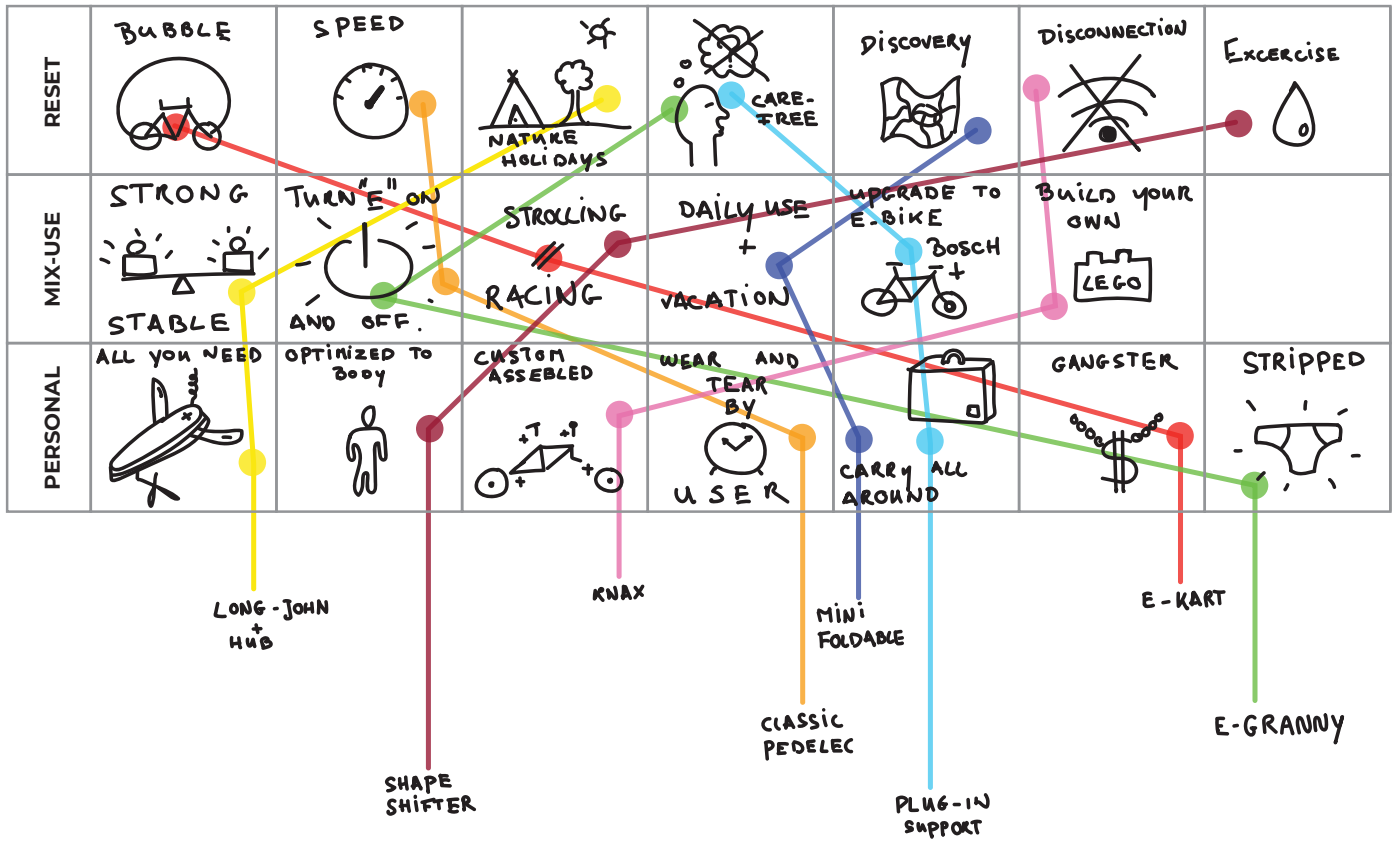 RESET
BUBBLE
SPEED
NATURE
HOLIDAYS
CARE-
FREE
DISCOVERY
DISCONNECTION
EXCERCISE
MIX-USE
STRONG
STABLE
TURN "E" ON
AND OFF.
STROLLING
//
RACING
DAILY USE
+
VACATION
UPGRADE TO
E-BIKE
BOSCH
+
BUILD YOUR
OWN
LEGO
PERSONAL
ALL YOU NEED
OPTIMIZED TO
BODY
CUSTOM
ASSEBLED
+T
+P
+
+
WEAR AND
TEAR
BY
USER
CARRY ALL
AROUND
GANGSTER
$
STRIPPED
LONG-JOHN
+
HUB
KNAX
MINI
FOLDABLE
E-KART
CLASSIC
PEDELEC
E-GRANNY
SHAPE
SHIFTER
PLUG-IN
SUPPORT